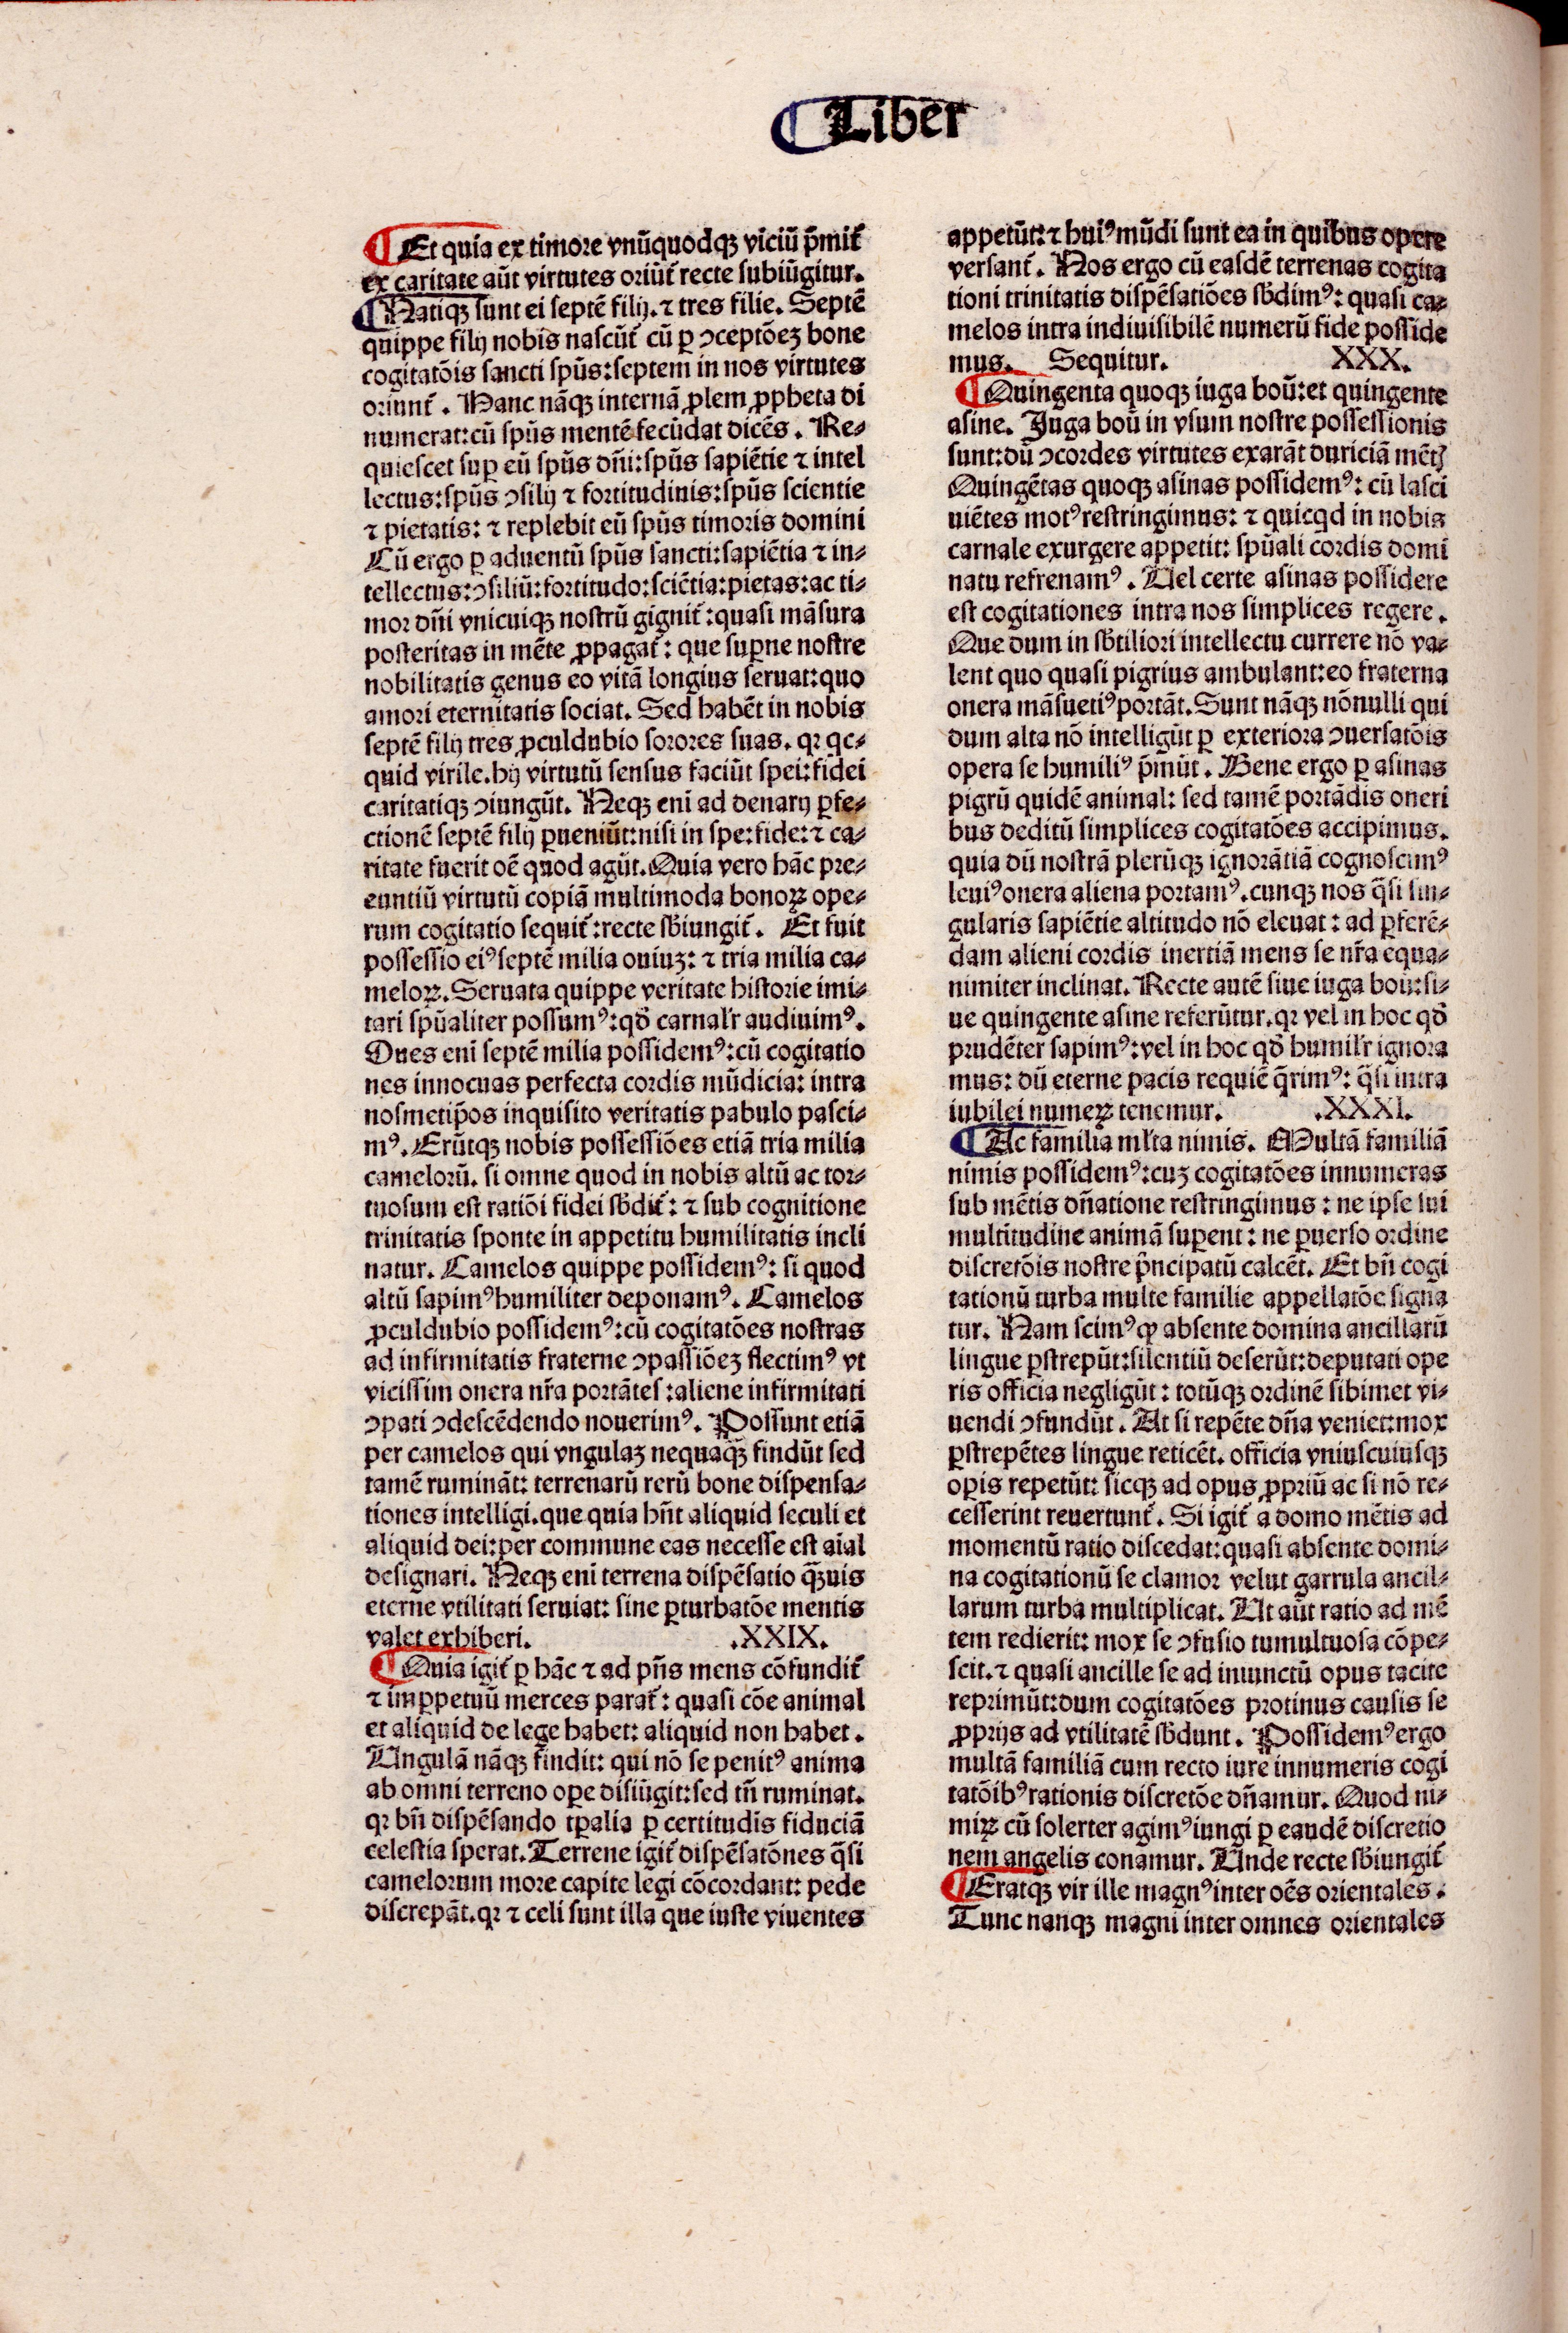 ¶ Liber
¶ Et quia ex timore vnūquodqꝫ viciū p̄mit᷑
ex caritate aūt virtutes oriūt᷑ recte subiūgitur.
¶ Natiqꝫ sunt ei septē filij. ⁊ tres filie. Septē
quippe filij nobis nascūt᷑ cū ꝑ ↄceptōeꝫ bone
cogitatōis sancti spūs: septem in nos virtutes
oriunt᷑. Hanc nāqꝫ internā ꝓlem ꝓpheta di
numerat: cū spūs mentē fecūdat dicēs. Re-
quiescet suꝑ eū spūs dñi: spūs sapiētie ⁊ intel
lectus: spūs ↄsilij ⁊ fortitudinis: spūs scientie
⁊ pietatis: ⁊ replebit eū spūs timoris domini
Cū ergo ꝑ aduentū spūs sancti: sapiētia ⁊ in-
tellectus: ↄsiliū: fortitudo: sciētia: pietas: ac ti-
mor dñi vnicuiqꝫ nostrū gignit᷑: quasi māsura
posteritas in mēte ꝓpagat᷑: que suꝑne nostre
nobilitatis genus eo vitā longius seruat: quo
amori eternitatis sociat. Sed habēt in nobis
septē filij tres ꝓculdubio sorores suas. qꝛ qc-
quid virile. hij virtutū sensus faciūt spei: fidei
caritatiqꝫ ↄiungūt. Neqꝫ eni ad denarij ꝑfe-
ctionē septē filij ꝑueniūt: nisi in spe: fide: ⁊ ca-
ritate fuerit oē quod agūt. Quia vero hāc pre-
euntiū virtutū copiā multimoda bonoꝝ ope-
rum cogitatio sequit᷑: recte sb̄iungit᷑. Et fuit
possessio eiꝰ septē milia ouiuꝫ: ⁊ tria milia ca-
meloꝝ. Seruata quippe veritate historie imi-
tari spūaliter possumꝰ: qđ carnalr̄ audiuimꝰ.
Oues eni septē milia possidemꝰ: cū cogitatio
nes innocuas perfecta cordis mūdicia: intra
nosmetip̄os inquisito veritatis pabulo pasci-
mꝰ. Erūtqꝫ nobis possessiōes etiā tria milia
camelorū. si omne quod in nobis altū ac tor-
tuosum est ratiōi fidei sb̄dit᷑: ⁊ sub cognitione
trinitatis sponte in appetitu humilitatis incli
natur. Camelos quippe possidemꝰ: si quod
altū sapimꝰ humiliter deponamꝰ. Camelos
ꝓculdubio possidemꝰ: cū cogitatōes nostras
ad infirmitatis fraterne ↄpassiōeꝫ flectimꝰ vt
vicissim onera nr̄a portātes: aliene infirmitati
ↄpati ↄdescēdendo nouerimꝰ. Possunt etiā
per camelos qui vngulaꝫ nequaq̄ꝫ findūt sed
tamē rumināt: terrenarū rerū bone dispensa-
tiones intelligi. que quia hñt aliquid seculi et
aliquid dei: per commune eas necesse est aīal
designari. Neqꝫ eni terrena dispēsatio q̄ꝫuis
eterne vtilitati seruiat: sine ꝑturbatōe mentis
valet exhiberi. .XXIX.
¶ Quia igit᷑ ꝑ hāc ⁊ ad pñs mens cōfundit᷑
⁊ imꝑpetuū merces parat᷑: quasi cōe animal
et aliquid de lege habet: aliquid non habet.
Ungulā nāqꝫ findit: qui nō se penitꝰ anima
ab omni terreno oꝑe disiūgit: sed tñ ruminat.
qꝛ bñ dispēsando tꝑalia ꝑ certitudīs fiduciā
celestia sperat. Terrene igit᷑ dispēsatōnes q̄si
camelorum more capite legi cōcordant: pede
discrepāt. qꝛ ⁊ celi sunt illa que iuste viuentes
appetūt: ⁊ huiꝰ mūdi sunt ea in quibus opere
versant᷑. Nos ergo cū easdē terrenas cogita
tioni trinitatis dispēsatiōes sb̄dimꝰ: quasi ca-
melos intra indiuisibilē numerū fide posside
mus. Sequitur. XXX.
¶ Quingenta quoqꝫ iuga boū: et quingente
asine. Juga boū in vsum nostre possessionis
sunt: dū ↄcordes virtutes exarāt duriciā mēt̄
Quingētas quoqꝫ asinas possidemꝰ: cū lasci
uiētes motꝰ restringimus: ⁊ quicqd in nobis
carnale exurgere appetit: spūali cordis domi
natu refrenamꝰ. Uel certe asinas possidere
est cogitationes intra nos simplices regere.
Que dum in sb̄tiliori intellectu currere nō va-
lent quo quasi pigrius ambulant: eo fraterna
onera māsuetiꝰ portāt. Sunt nāqꝫ nōnulli qui
dum alta nō intelligūt ꝑ exteriora ↄuersatōis
opera se humiliꝰ p̄mūt. Bene ergo ꝑ asinas
pigrū quidē animal: sed tamē portādis oneri
bus deditū simplices cogitatōes accipimus.
quia dū nostrā plerūqꝫ ignorātiā cognoscimꝰ
leuiꝰ onera aliena portamꝰ. cunqꝫ nos q̄si sin-
gularis sapiētie altitudo nō eleuat: ad ꝑferē-
dam alieni cordis inertiā mens se nr̄a equa-
nimiter inclinat. Recte autē siue iuga boū: si-
ue quingente asine referūtur. qꝛ vel in hoc qđ
prudēter sapimꝰ: vel in hoc qđ humilr̄ ignora
mus: dū eterne pacis requiē q̄rimꝰ: q̄si intra
iubilei numeꝝ tenemur. .XXXI.
¶ Ac familia ml̄ta nimis. Multā familiā
nimis possidemꝰ: cuꝫ cogitatōes innumeras
sub mētis dñatione restringimus: ne ipse sui
multitudine animā suꝑent: ne ꝑuerso ordine
discretōis nostre p̄ncipatū calcēt. Et bñ cogi
tationū turba multe familie appellatōe signa
tur. Nam scimꝰ ꝙ absente domina ancillarū
lingue ꝑstrepūt: silentiū deserūt: deputati ope
ris officia negligūt: totūqꝫ ordinē sibimet vi-
uendi ↄfundūt. At si repēte dña veniet: mox
ꝑstrepētes lingue reticēt. officia vniuscuiusqꝫ
oꝑis repetūt: sicqꝫ ad opus ꝓpriū ac si nō re-
cesserint reuertunt᷑. Si igit᷑ a domo mētis ad
momentū ratio discedat: quasi absente domi-
na cogitationū se clamor velut garrula ancil-
larum turba multiplicat. Ut aūt ratio ad mē
tem redierit: mox se ↄfusio tumultuosa cōpe-
scit. ⁊ quasi ancille se ad iniunctū opus tacite
reprimūt: dum cogitatōes protinus causis se
ꝓprijs ad vtilitatē sb̄dunt. Possidemꝰ ergo
multā familiā cum recto iure innumeris cogi
tatōibꝰ rationis discretōe dñamur. Quod ni-
miꝝ cū solerter agimꝰ iungi ꝑ eandē discretio
nem angelis conamur. Unde recte sb̄iungit᷑
¶ Eratqꝫ vir ille magnꝰ inter oēs orientales.
Tunc nanqꝫ magni inter omnes orientales